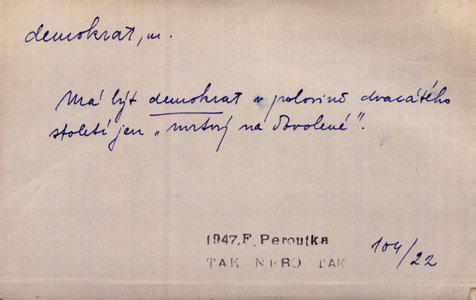 demokrat, m.
Má být demokrat v polovině dvacátého
století jen „mrtvý na dovolené".
1947, F. Peroutka
TAK NEBO TAK
104/22